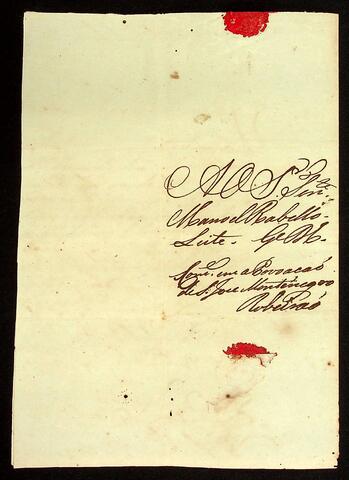 AO S.r Ten.te
Manoel Rabello
Leite. G.e M.
a Povoacaõ
de S. Jose Montenegro